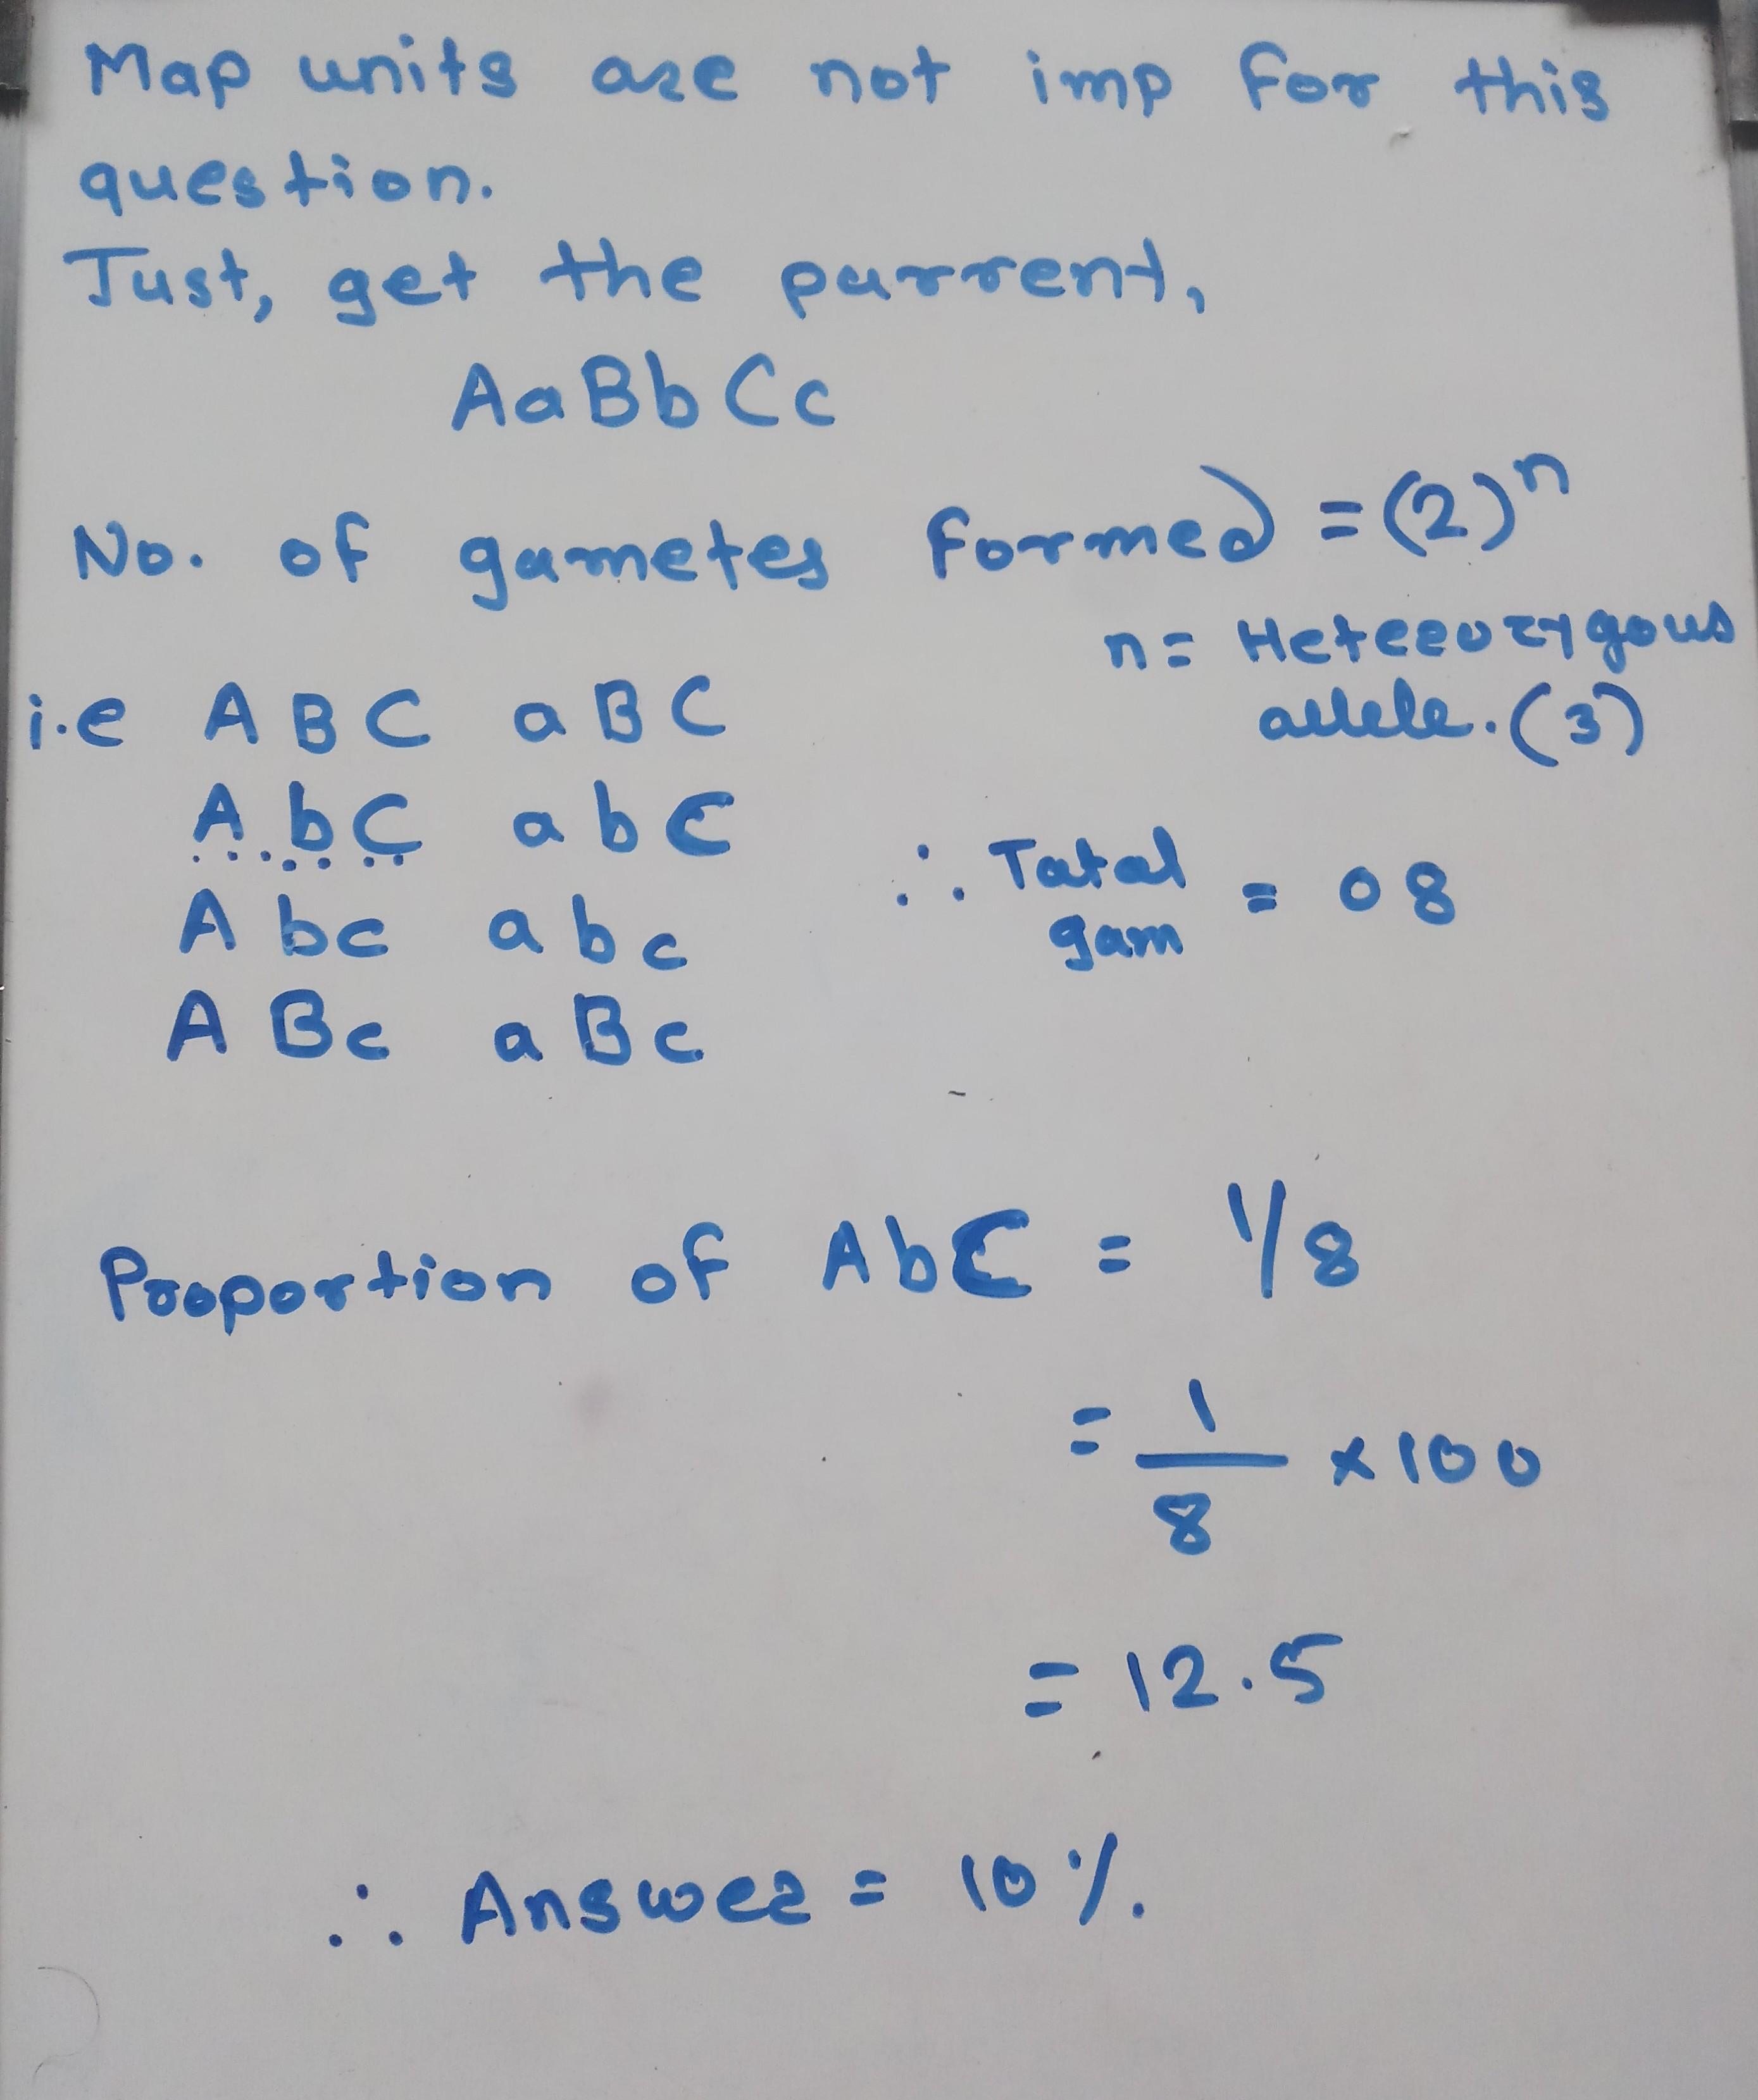 Map units are not imp for this
question.
Just, get the parrent,
AaBbCc
No. of gametes formed = (2)ⁿ
n = Heterozygous
allele. (3)
i.e ABC aBC
AbC abC
Abc abc
ABc aBc
∴ Total
gam = 08
Proportion of AbC = 1/8
= 1/8 × 100
= 12.5
∴ Answer = 10 %.